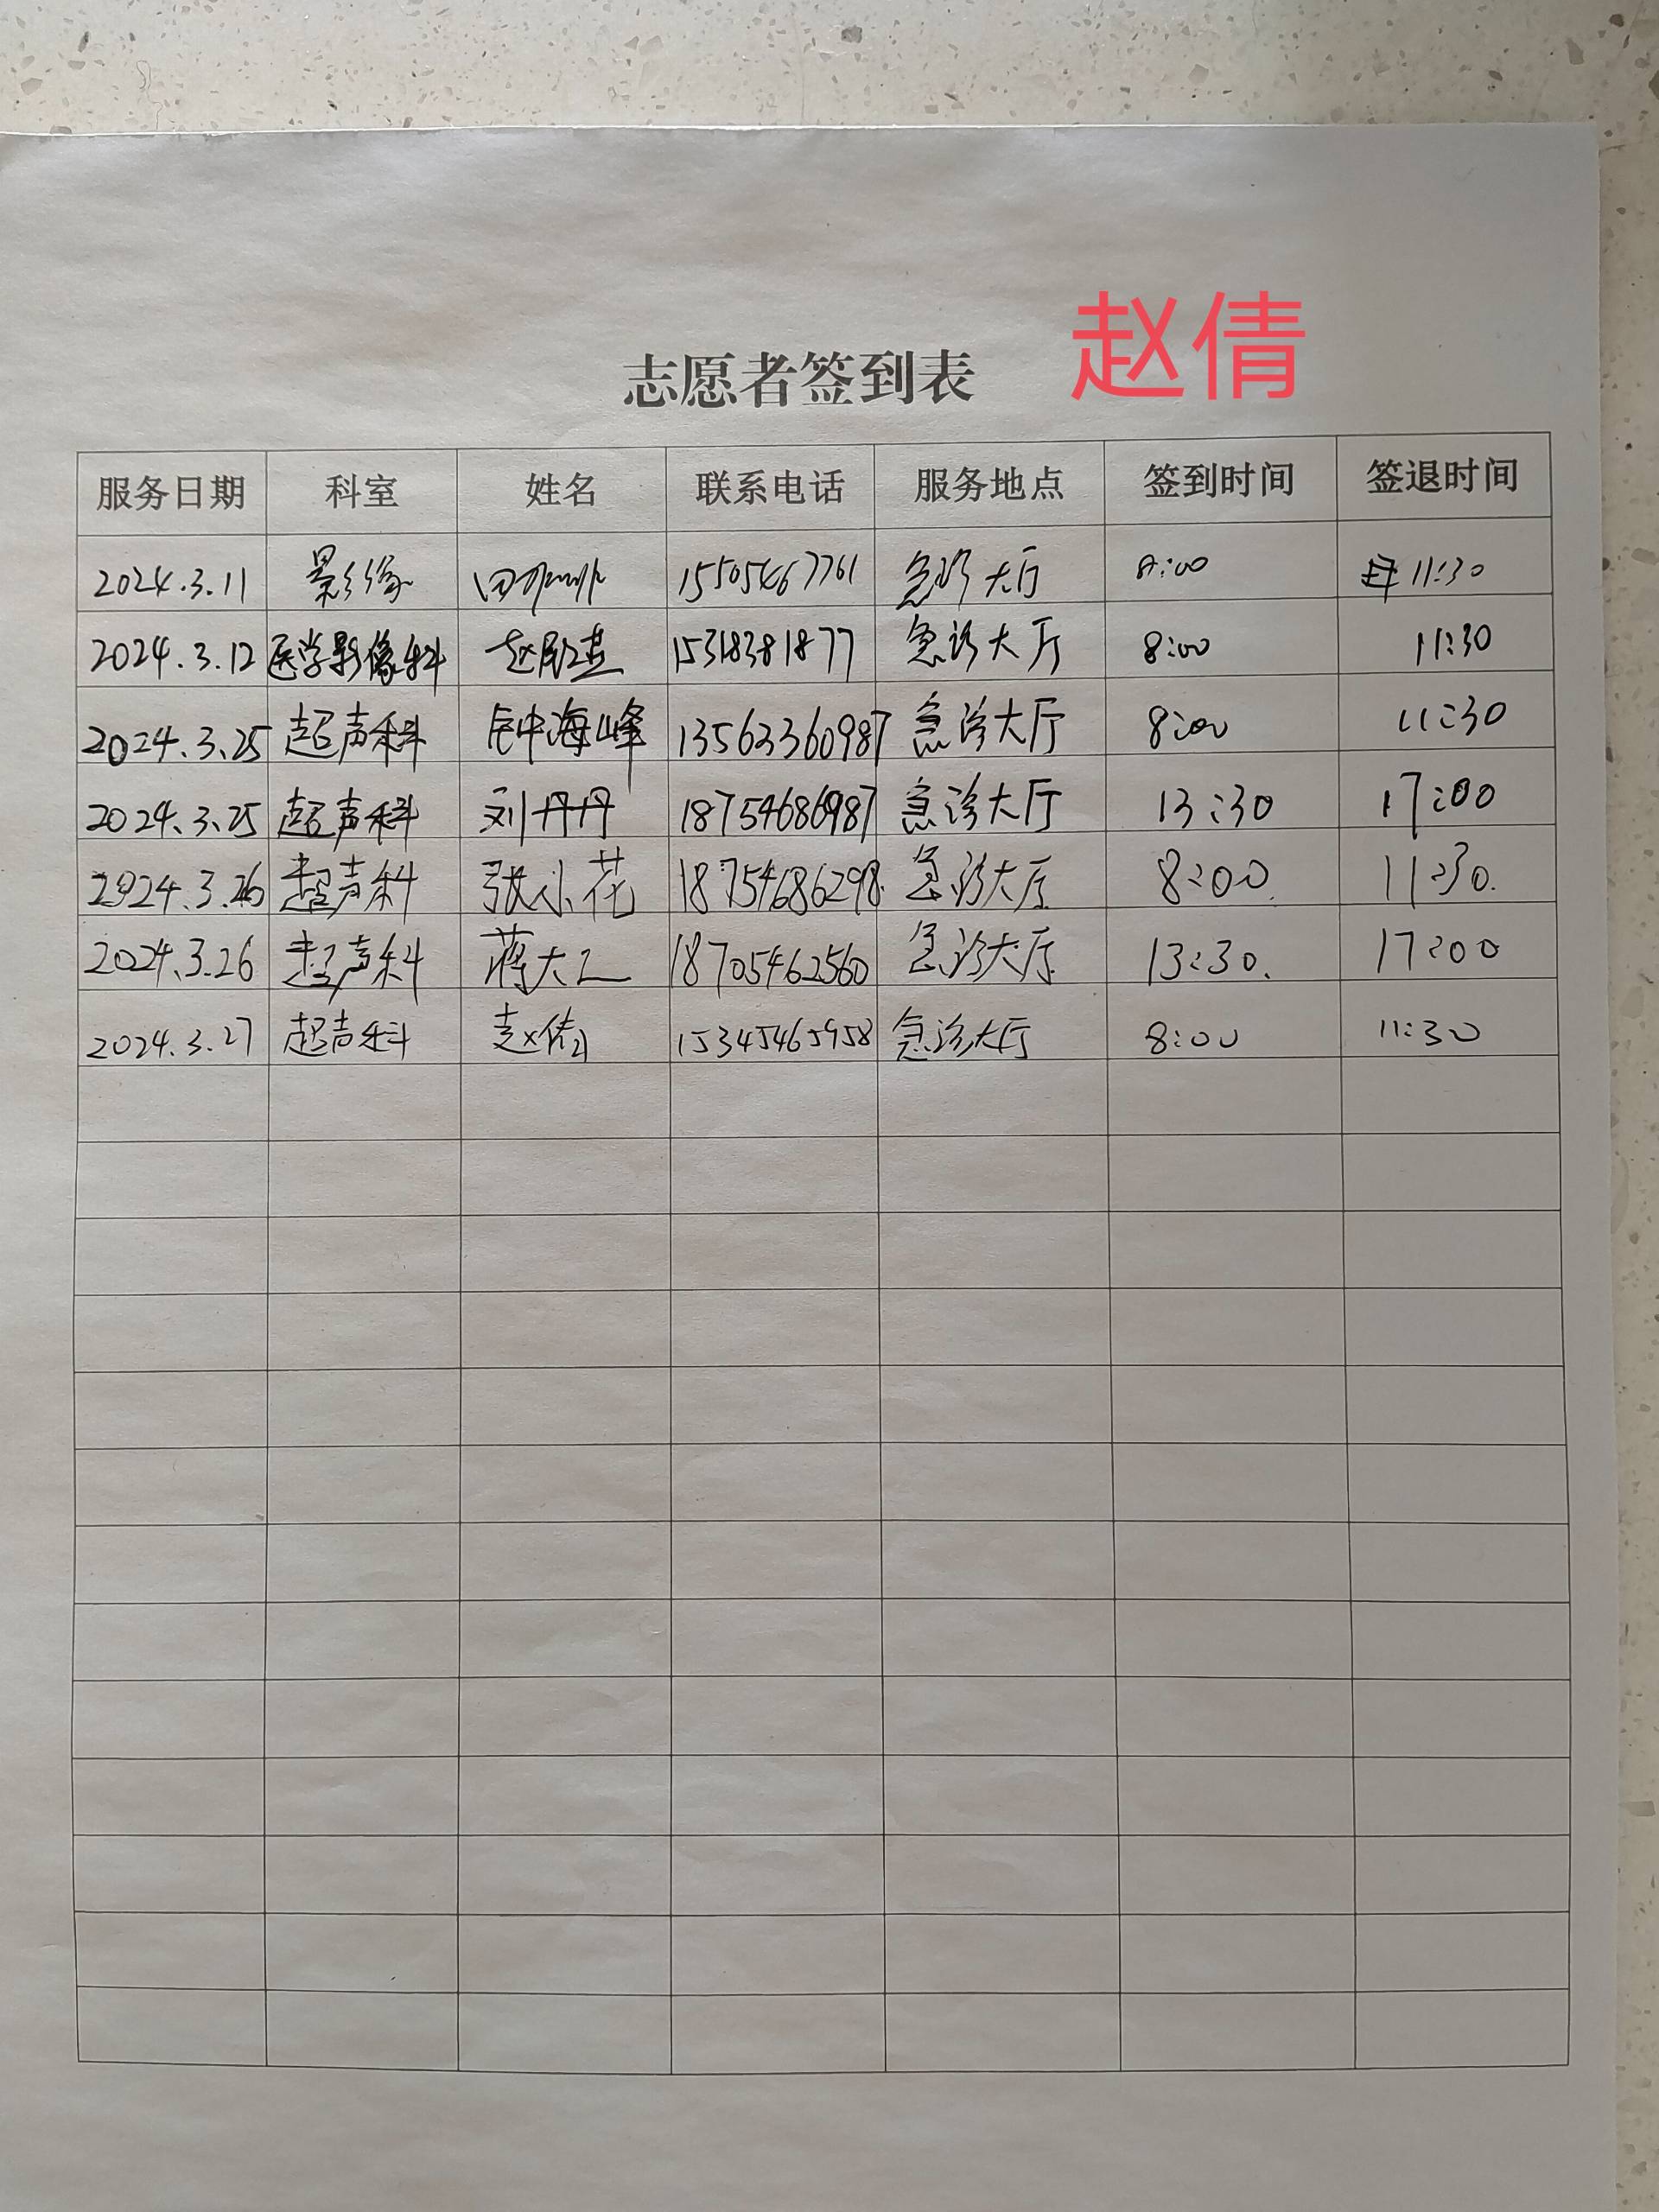 赵倩
志愿者签到表
服务日期 科室 姓名 联系电话 服务地点 签到时间 签退时间
2024.3.11 影像 15505467761 急诊大厅 8:00 11:30
2024.3.12 医学影像科 15318381877 急诊大厅 8:00 11:30
2024.3.25 超声科 钟海峰 13563360987 急诊大厅 8:00 11:30
2024.3.25 超声科 刘丹丹 18754686987 急诊大厅 13:30 17:00
2024.3.26 超声科 张小花 18754686298 急诊大厅 8:00 11:30.
2024.3.26 超声科 蒋大工 18705462560 急诊大厅 13:30. 17:00
2024.3.27 超声科 赵倩 15345465958 急诊大厅 8:00 11:30